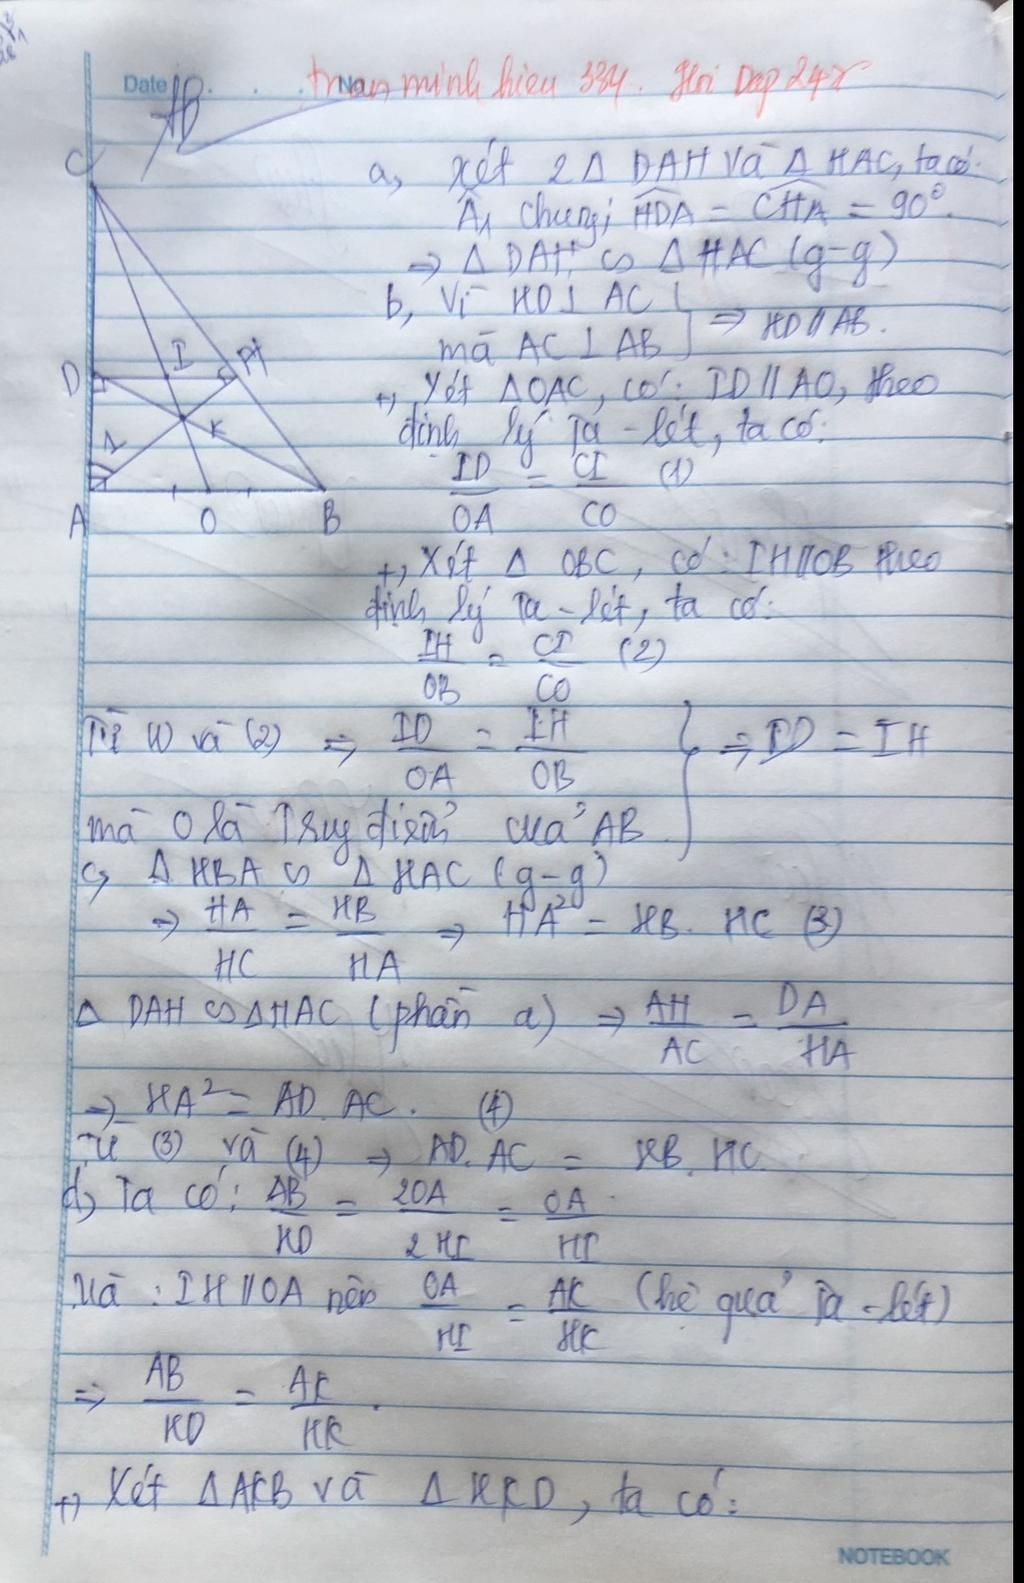 Date . . . No
tran minh hieu 334. Hoi Dap 247
AB
C
D
I
H
K
1
A
O
B
a, Xét 2 Δ DAH và Δ HAC, ta có:
Â₁ chung; HDA = CHA = 90°.
⇒ Δ DAH ∽ Δ HAC (g-g)
b, Vì HD ⊥ AC
mà AC ⊥ AB } ⇒ HD // AB.
+, Xét ΔOAC, có: ID // AO, theo
định lý Ta-lét, ta có:
ID/OA = CI/CO (1)
+, Xét Δ OBC, có: IH // OB theo
định lý Ta-lét, ta có:
IH/OB = CI/CO (2)
Từ (1) và (2) ⇒ ID/OA = IH/OB } ⇒ ID = IH
mà O là Trung điểm của AB
c, Δ HBA ∽ Δ HAC (g-g)
⇒ HA/HC = HB/HA ⇒ HA² = HB. HC (3)
Δ DAH ∽ ΔHAC (phần a) ⇒ AH/AC = DA/HA
⇒ HA² = AD. AC. (4)
Từ (3) và (4) ⇒ AD. AC = HB. HC.
d, Ta có: AB/HD = 2OA/2HI = OA/HI.
Mà: IH // OA nên OA/HI = AK/HK (hệ quả Ta-lét)
⇒ AB/HD = AK/HK.
+, Xét ΔAKB và Δ HKD, ta có:
NOTEBOOK